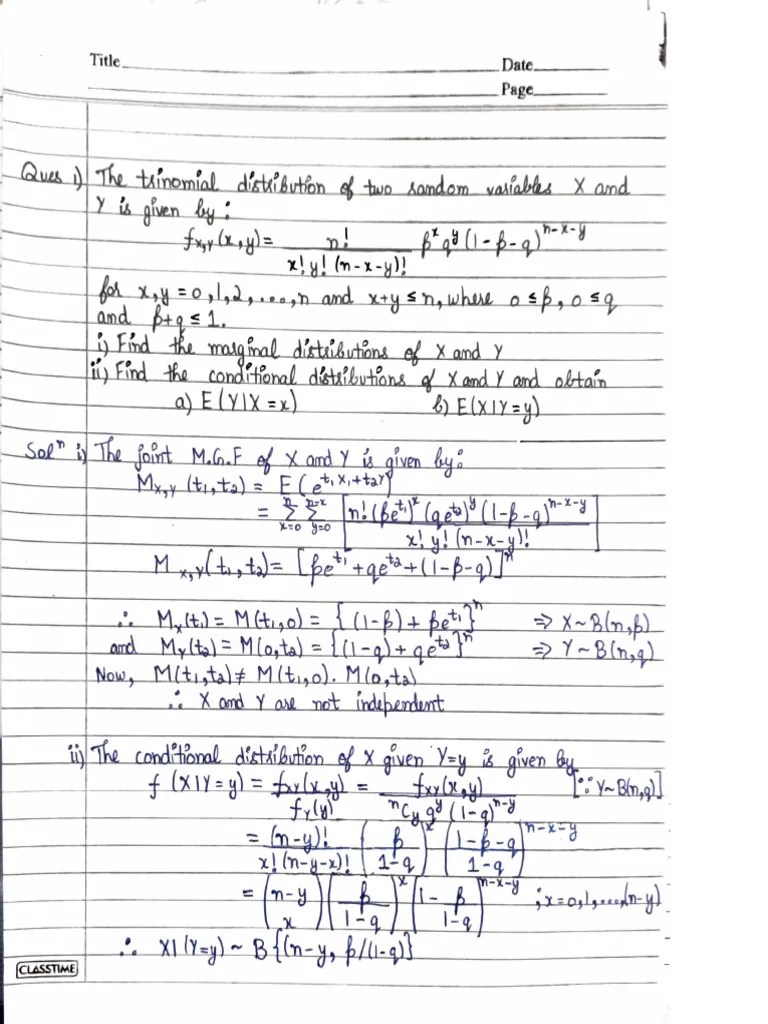 Title
Date
Page
Ques 1) The trinomial distribution of two random variables X and
Y is given by:
fX,Y(x,y) = n! / x! y! (n-x-y)! p^x q^y (1-p-q)^(n-x-y)
for x,y = 0,1,2,...,n and x+y ≤ n, where 0 ≤ p, 0 ≤ q
and p+q ≤ 1.
i) Find the marginal distributions of X and Y
ii) Find the conditional distributions of X and Y and obtain
a) E(Y|X=x) b) E(X|Y=y)
Solⁿ i) The joint M.G.F of X and Y is given by:
MX,Y (t1,t2) = E(e^(t1X1+t2Y))
= Σ(x=0 to n) Σ(y=0 to n-x) [n! (pe^t1)^x (qe^t2)^y (1-p-q)^(n-x-y) / x! y! (n-x-y)!]
MX,Y(t1,t2) = [pe^t1 + qe^t2 + (1-p-q)]^n
∴ MX(t1) = M(t1,0) = {(1-p) + pe^t1}^n ⇒ X~B(n,p)
and MY(t2) = M(0,t2) = {(1-q) + qe^t2}^n ⇒ Y~B(n,q)
Now, M(t1,t2) ≠ M(t1,0). M(0,t2)
∴ X and Y are not independent
ii) The conditional distribution of X given Y=y is given by
f(X|Y=y) = fXY(x,y) / fY(y) = fXY(x,y) / nCy q^y (1-q)^(n-y) [∵ Y~B(n,q)]
= (n-y)! / x! (n-y-x)! (p / 1-q)^x (1-p-q / 1-q)^(n-x-y)
= (n-y x) (p / 1-q)^x (1 - p / 1-q)^(n-x-y) ; x=0,1,...,(n-y)
∴ X|(Y=y) ~ B{(n-y, p/(1-q)}
CLASSTIME